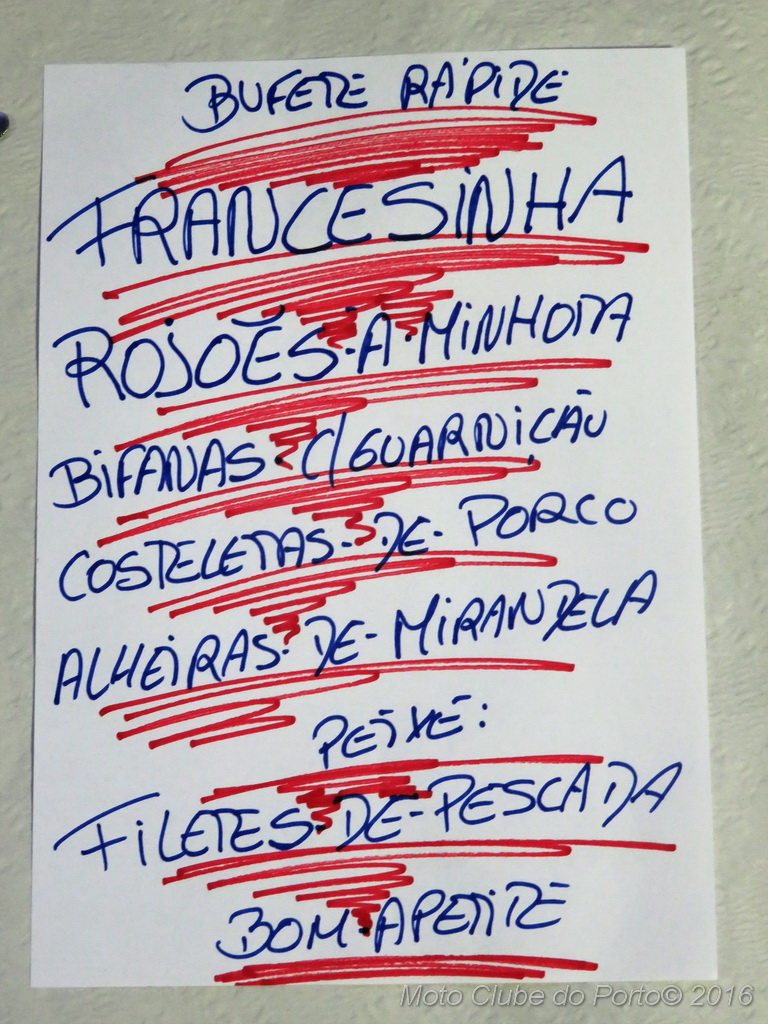 BUFETE RÁPIDE
FRANCESINHA
ROJOẼS-A-MINHOTA
BIFANAS-C/GUARNIÇÃO
COSTELETAS-DE-PORCO
ALHEIRAS-DE-MIRANDELA
PEIXE:
FILETES-DE-PESCADA
BOM-APETITE
Moto Clube do Porto© 2016